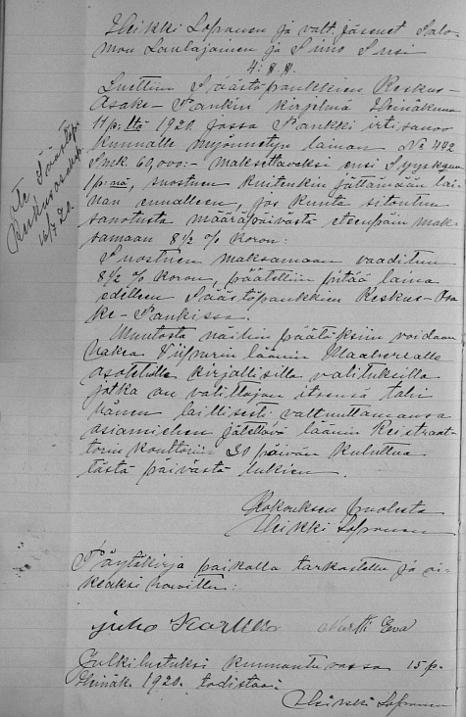 Heikki Sopanen ja valt. jäsenet Salo-
mon Laulajainen ja Simo Susi
4: §§.
Luettiin Säästöpankkien Keskus-
Osake-Pankin kirjelmä Heinäkuun
11 p:ltä 1920. jossa Pankki irtisanoo
kunnalle myönnetyn lainan № 442
Smk 60,000:- maksettavaksi ensi Syyskuun
1 p:nä, suostuen kuitenkin jättämään lai-
nan ennalleen, jos kunta sitoutuu
sanotusta määräpäivästä eteenpäin mak-
samaan 8½ % koron:
Suostuen maksamaan vaaditun
8½ % koron, päätettiin pitää laina
edelleen Säästöpankkien Keskus-Osa-
ke-Pankissa.
Muutosta näihin päätöksiin voidaan
hakea Viipurin läänin Maaherralle
osotetulla kirjallisilla valituksilla
jotka on valittajan itsensä tahi
hänen laillisesti valtuuttamansa
asiamiehen jätettävä läänin Reistraat-
torin konttoriin 30 päivän kuluttua
tästä päivästä lukien.
Kokouksen puolesta
Heikki Sopanen
Pöytäkirja paikalla tarkastettu ja oi-
keaksi havaittu:
Juho Martti
Julkiluetuksi kunnantuvassa 15 p.
Heinäk. 1920. todistaa:
Heikki Sopanen
Ote Säästöp.
16/7 20.